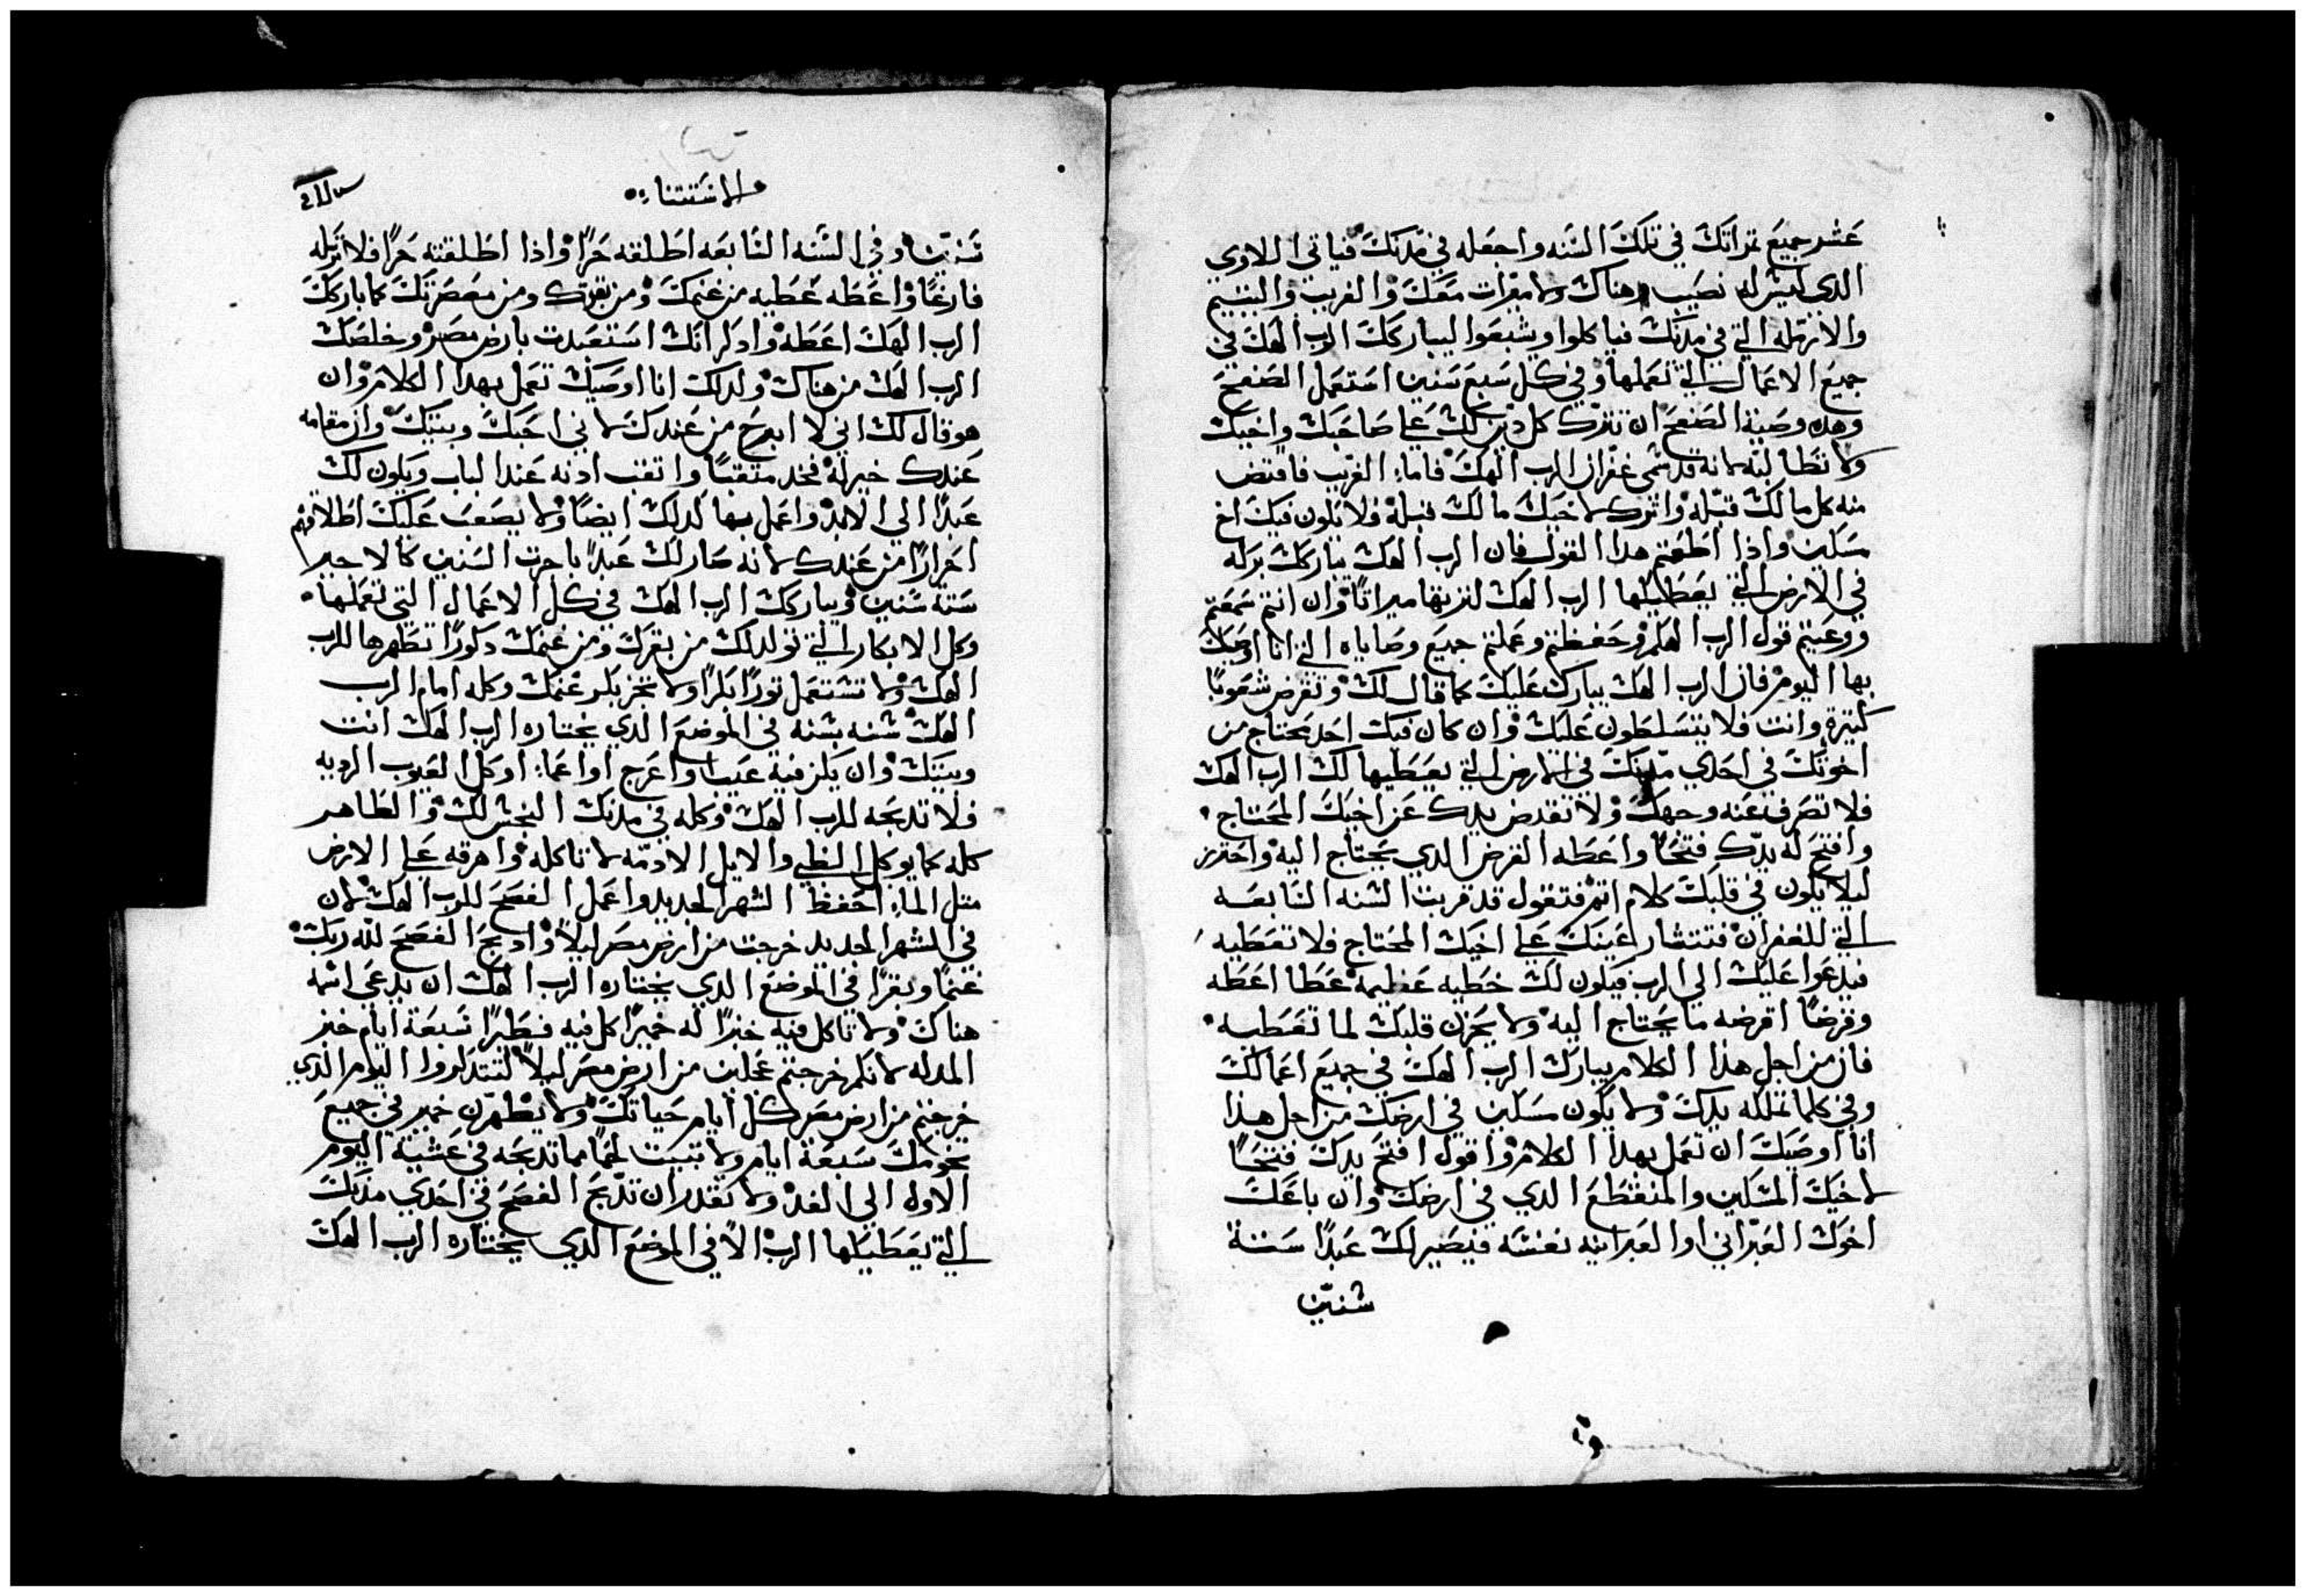 عشر جميع تمراتك في تلك السنه واجعله في مدنك فياتي اللاوي
الدي ليش له نصيب هناك ولا ميرات معك والغريب واليتيم
والارمله التي في مدنك فياكلوا ويشبعوا ليباركك الرب الهك في
جميع الاعمال التي تعملها وفي كل سبع سنين استعمل الصفح
وهده وصية الصفح ان تترك كل دين لك علي صاحبك واخيك
ولا تطالبه لانه قد سمي غفران الرب الهك فاما الغريب فاقتض
منه كل ما لك قبله واترك لاخيك ما لك قبله ولا يكون فيك اخ
مسكين واذا اطعتم هدا القول فان الرب الهك يباركك بركه
في الارض التي يعطيكها الرب الهك لترتها ميراتا وان انتم سمعتم
ووعيتم قول الرب الهكم وحفظتم وعملتم جميع وصاياه التي انا اوصيك
بها اليوم فان الرب الهك يبارك عليك كما قال لك وتقرض شعوبا
كتيرة وانت فلا يتسلطون عليك وان كان فيك احد يحتاج من
اخوتك في احدي مدنك في الارض التي يعطيها لك الرب الهك
فلا تصرف عنه وجهك ولا تقبض يدك عن اخيك المحتاج
وافتح له يدك فتحا واعطه القرض الدي يحتاج اليه واحترز
ليلا يكون في قلبك كلام اتم فتقول قد قربت السنه السابعه
التي للغفران فتتشار عينك علي اخيك المحتاج فلا تعطيه
فيدعوا عليك الي الرب فيكون لك خطيه عظيمه عطا اعطه
وقرضا اقرضه ما يحتاج اليه ولا يحزن قلبك لما تعطيه
فان من اجل هذا الكلام يبارك الرب الهك في جميع اعمالك
وفي كلما تملكه يدك ولا يكون مسكين في ارضك من اجل هذا
انا اوصيك ان تعمل بهدا الكلام واقول افتح يدك فتحا
لاخيك المسكين والمنقطع الدي في ارضك وان باعك
اخوك العبراني او العبرانيه نفسه فيصير لك عبدا ستة
شنين
الاستتناء
سنين وفي السنه السابعه اطلقه حرا واذا اطلقته حرا فلا تتركه
فارغا واعطه عطيه من غنمك ومن بقرك ومن معصرتك كما باركك
الرب الهك اعطه وادكر انك استعبدت بارض مصر وخلصك
الرب الهك من هناك ولدلك انا اوصيك تعمل بهدا الكلام وان
هو قال لك اني لا ابرح من عندك لاني احبك وبيتك وان مقامه
عندك خير له فخد متقبا واتقب ادنه عند الباب ويكون لك
عبدا الي الابد واعمل بها كدلك ايضا ولا يصعب عليك اطلاقهم
احرارا من عندك لانه صار لك عبدا باجرت السنين كالاجير
ستة سنين ويباركك الرب الهك في كل الاعمال التي تعملها
وكل الابكار التي تولد لك من بقرك ومن غنمك دكورا تطهرها للرب
الهك ولا تشتعمل تورا بكرا ولا تجز بكر غنمك وكله امام الرب
الهك شنه بشنه في الموضع الدي يختاره الرب الهك انت
وبيتك وان يكن فيه عيب او اعرج او اعما او كل العيوب الرديه
فلا تدبحه للرب الهك وكله في مدنك النجش لك والطاهر
كله كما يوكل الظبي والايل الا دمه لا تاكله واهرقه علي الارض
متل الما احفظ الشهر الجديد واعمل الفصح للرب الهك لان
في الشهر الجديد خرجت من ارض مصر ليلا وادبح الفصح لله ربك
غنما وبقرا في الموضع الدي يختاره الرب الهك ان يدعي اسمه
هناك ولا تاكل فيه خبزا له خميرا كل فيه فطيرا سبعة ايام خبز
المدله لانكم خرجتم عجلين من ارض مصر ليلا لتتدكروا اليوم الدي
خرجتم من ارض مصر كل ايام حياتك ولا يظهرن خمير في جميع
تخومك سبعة ايام ولا تبيت لحما مما تدبحه في عشية اليوم
الاول الي الغد ولا تقدر ان تدبح الفصح في احدي مدنك
التي يعطيكها الرب الا في الموضع الدي يختاره الرب الهك